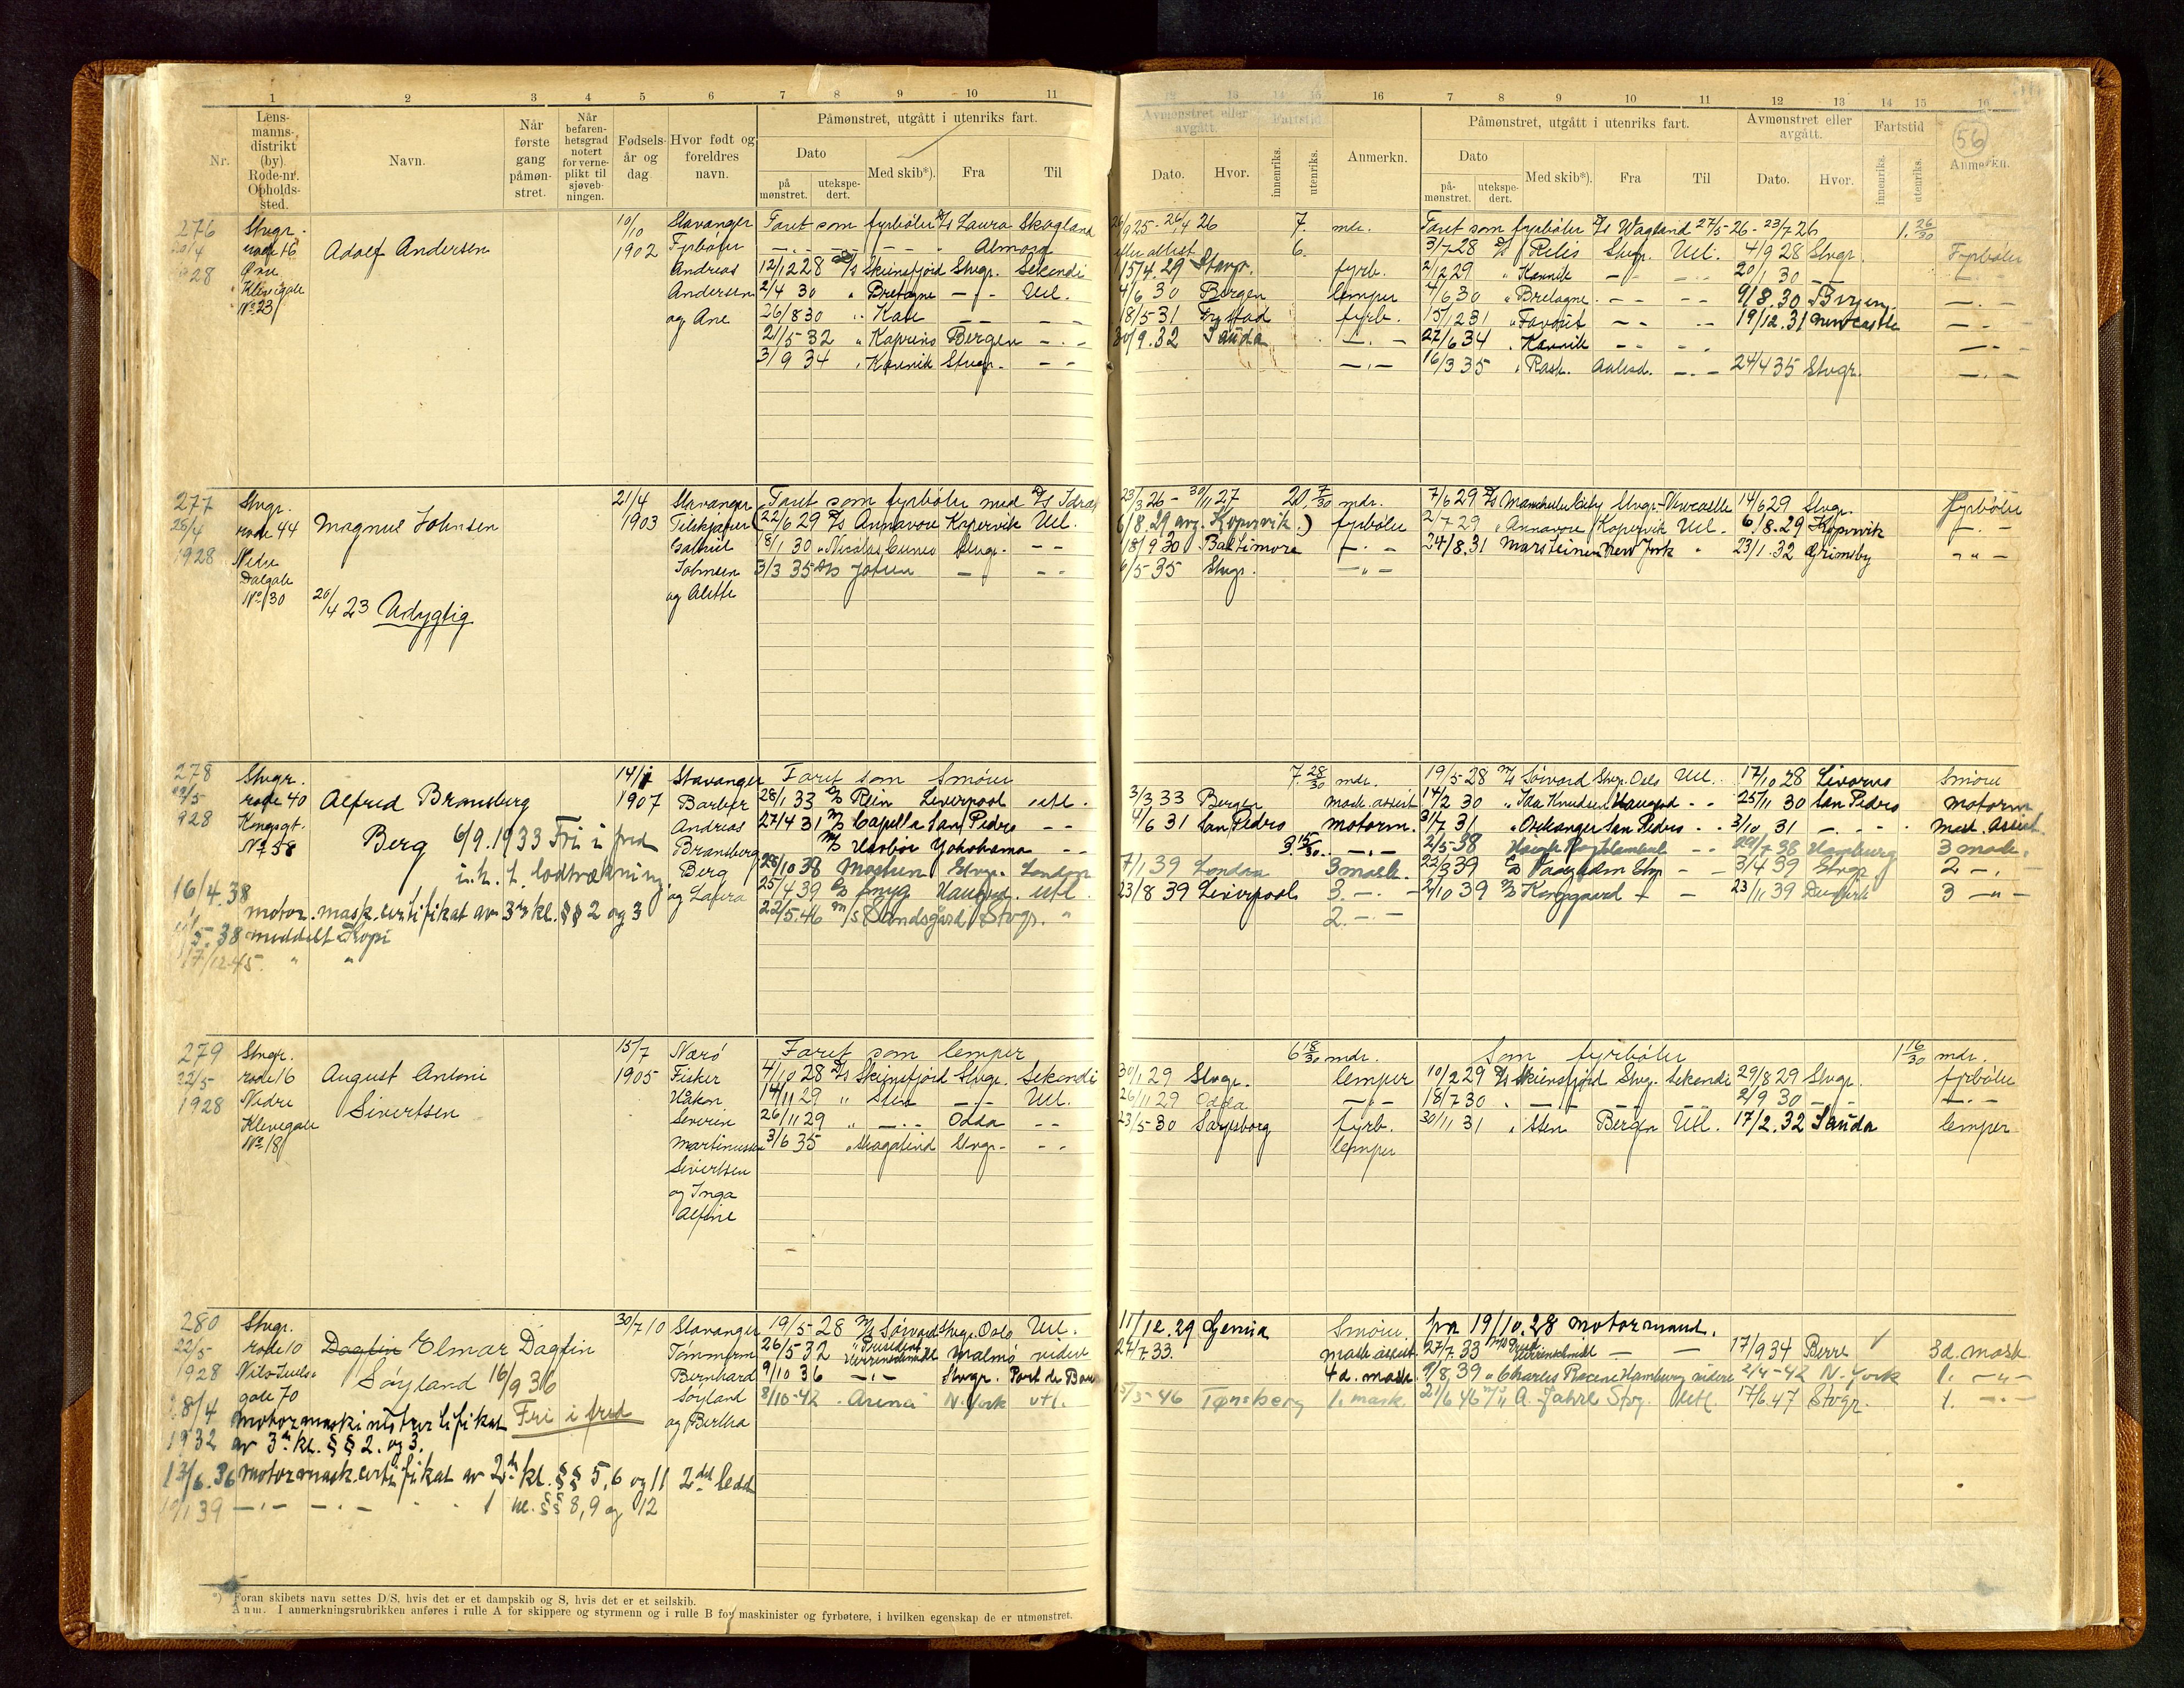 1 2 3 4 5 6 7 8 9 10 11
Nr.
Lens-
manns-
distrikt
(by)
Rode-nr.
Opholds-
sted.
Navn.
Når
første
gang
påmøn-
stret.
Når
befaren-
hetsgrad
notert
for verne-
plikt til
sjøveb-
ningen.
Fødsels-
år og
dag
Hvor født og
foreldres
navn.
Påmønstret, utgått i utenriks fart.
Dato
på
mønstret.
utekspe-
dert.
Med skib*).
Fra
Til
12 13 14 15 16 7 8 9 10 11 12 13 14 15 16
Avmønstret eller
avgått.
Fartstid
Dato.
Hvor.
innenriks.
utenriks.
Anmerkn.
Påmønstret, utgått i utenriks fart.
Dato
på-
mønstret.
utekspe-
dert.
Med skib*).
Fra
Til
Avmønstret eller
avgått.
Dato.
Hvor.
Fartstid
innenriks.
utenriks.
Anmerkn.
56
276
20/4
1928
Stvgr.
rode 16
Øvre
Klevegate
No 23
Adolf Andersen
10/10
1902
Stavanger
Fyrbøter
Andreas
Andersen
og Ane
Faret som fyrbøter D/s Laura Skogland
26/9 25 - 26/4 26 7. mdr.
Faret som fyrbøter D/s Wagland 27/5-26 - 23/7 26 1. 26/30
— — — — Almora
6.
3/7-28 D/s Pelis Stvgr. Utl. 4/9 28 Stvgr. Fyrbøter
12/12 28 D/s Skiensfjord Stvgr. Sekondi
15/4.29 Stavgr. fyrb.
2/12 29 " Karmik — — 20/1 30 — —
2/4 30 " Bretagne — Utl.
4/6 30 Bergen lemper
4/6 30 " Bretagne — — 9/8.30 Bergen —
26/8 30 " Kari — —
18/5-31 fyrb.
15/12 31 " Favorit — — 19/12.31 Newcastle —
21/5-32 " Kaprino Bergen —
30/9.32 Sauda —
27/6 34 " Karmik — —
3/9 34 " Karmik Stvgr. —
16/3 35 " Rask Aalesd. — 24/4 35 Stvgr. —
277
25/4
1928
Stvgr.
rode 44
Nedre
Dalgate
No 130
Magnus Johnsen
20/4 23 Udygtig
21/4
1903
Stavanger
Feilskjærer
Gabriel
Johnsen
og Alette
Faret som fyrbøter med D/s Idræt
23/3 26 - 30/11 27 20. 7/30 mdr.
7/6 29 D/s Manchester City Stvgr. Newcastle 14/6 29 Stvgr. fyrbøter
(22/6 29 D/s Annavore Kopervik Utl.
6/8.29 avg. Kopervik.) fyrbøter
2/7 29 " Annavore Kopervik Utl. 6/8.29 Kopervik —
18/1 30 " Nicolas Cuneo Stvgr. —
18/9 30 Baltimore —
24/8.31 Marsteinen New York " 23/1.32 Grimsby —
3/3 35 D/s Jofur — —
6/5-35 Stvgr. —
278
22/5
1928
Stvgr.
rode 40
Kongsgt.
No 58
Alfred Bransberg
Berg 6/9.1933 Fri i fred
i.h.t. lodtrækning
14/1
1907
Stavanger
Barber
Andreas
Bransberg
Berg
og Lovira
16/4.38
motor.mask.certifikat av 3die kl. §§ 2 og 3
11/5.38 meddelt Kopi
17/12-45. " "
Faret som Smører
7. 28/30 mdr.
19/5-28 M/s Sørvard Stvgr. Oslo Utl. 17/10 28 Livorno Smører
28/1 33 M/s Rein Liverpool utl.
3/3 33 Bergen mask.assist
14/2 30 " Ida Knudsen Haugesd — 25/11 30 San Pedro motorm
27/4 31 M/s Capella San Pedro —
4/6 31 San Pedro motorm.
31/7 31 " Orkanger San Pedro — 3/10 31 — mask. Assist.
M/s Hasbør Yokohama —
3. 15/30. —
2/5-38 — 29/7 38 Hamburg 3 mask.
28/10 38 Mostun Stvgr. London
7/1 39 London 3 mask.
22/3 39 Stvgr — 3/4 39 Stvgr 2 —
25/4 39 Haugesd. Utl.
23/8 39 Liverpool 3. —
2/10 39 Kongsgaard — 23/11 39 3 — " —
22/5-46 M/s Sandsgård Stvgr. "
2. —
279
22/5
1928
Stvgr.
rode 16
Nedre
Klevegate
No 18
August Antoni
Sivertsen
15/7
1905
Nærø
Fisker
Håkon
Severin
Martinussen
Sivertsen
og Inga
Alfine
Faret som lemper
6 18/30 mdr.
Som fyrbøter
1 16/30 mdr.
4/10 28 D/s Skiensfjord Stvgr. Sekondi
30/1 29 Stvgr. lemper
10/2 29 D/s Skiensfjord Stvgr. Sekondi 29/8 29 Stvgr. fyrbøter
14/11 29 " Sten — Utl.
26/11 29 Odda —
18/7 30 " — — — 2/9 30 — —
26/11 29 " — Odda —
23/5-30 Sarpsborg fyrb.
30/11 31 " Sten Bergen Utl. 17/2.32 Sauda lemper
3/6 35 " Skagatind Stvgr. —
lemper
280
22/5
1928
Stvgr.
rode 10
Nils Juels-
gate 70
Dagfin Elmar Dagfin
Søyland 16/9 36
Fri i fred
30/7 10
Stavanger
Tømmerm
Bernhard
Søyland
og Bertha
28/4
1932
motormaskinistcertifikat
av 3die kl. §§ 2. og 3.
13/6.36 motormask.certifikat av 2den kl. §§ 5,6 og 11 2det ledd
19/1 39 — — 1 kl. §§ 8, 9 og 12
19/5-28 M/s Sørvard Stvgr. Oslo Utl.
11/12.29 Genua Smører.
fra 19/10.28 motormand.
26/5 32 " President Herrenschmidt Malmø videre
27/7.33. mask assist.
27/7.33 M/s Pres. Herrenschmidt — — 17/9 34 Berre 3d. mask
9/10 36 — Stvgr. Port de Bouc
4d. mask.
9/8.39 " Charles Racine Hamburg videre 2/4-42 N. York 1. — " —
8/10-42 " Arena N. York utl.
15/3-46 Tønsberg 1. mask.
21/6 46 M/s A. Jahre Stvgr. Utl. 17/6.47 Stvgr. 1. —
*) Foran skibets navn settes D/S, hvis det er et dampskib og S, hvis det er et seilskib.
Anm. I anmerkningsrubrikken anføres i rulle A for skippere og styrmenn og i rulle B for maskinister og fyrbøtere, i hvilken egenskap de er utmønstret.